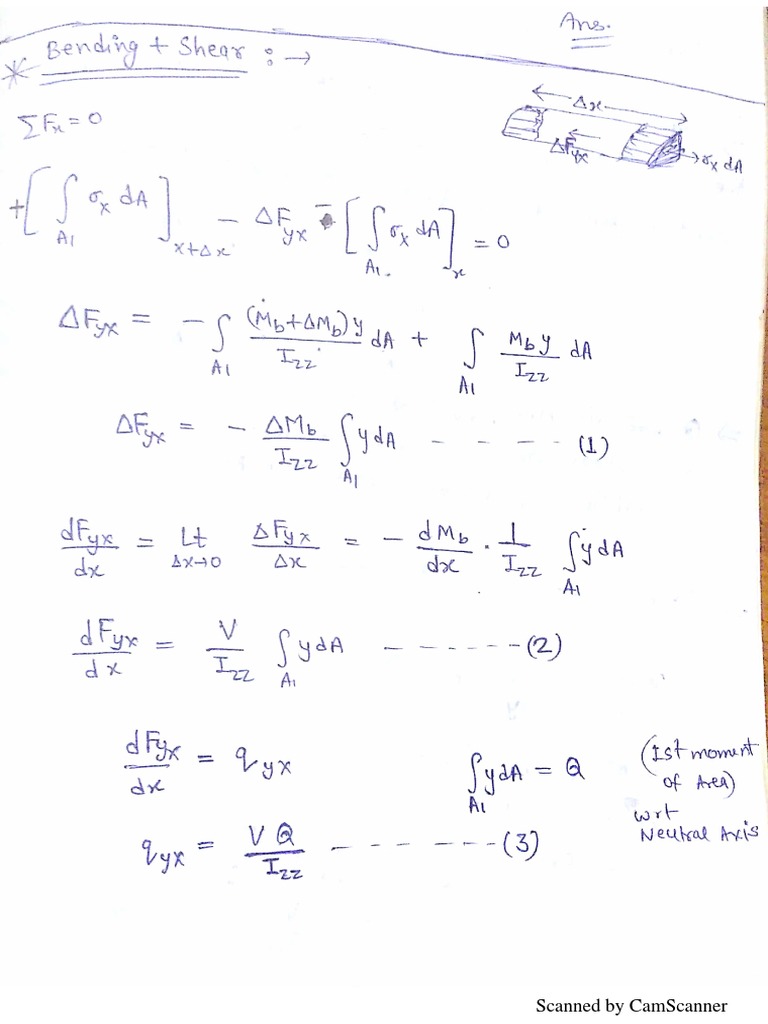 Ans.
* Bending + Shear :→
ΣFx = 0
Δx
ΔFyx
→ σx dA
+[∫A1 σx dA]x+Δx − ΔFyx − [∫A1 σx dA]x = 0
ΔFyx = − ∫A1 (Mb+ΔMb)y/Izz dA + ∫A1 Mb y/Izz dA
ΔFyx = − ΔMb/Izz ∫A1 y dA - - - - (1)
dFyx/dx = Lt Δx→0 ΔFyx/Δx = − dMb/dx · 1/Izz ∫A1 y dA
dFyx/dx = V/Izz ∫A1 y dA - - - - - - (2)
dFyx/dx = qyx ∫A1 y dA = Q (Ist moment of Area)
wrt
Neutral Axis
qyx = VQ/Izz - - - - - - - (3)
Scanned by CamScanner